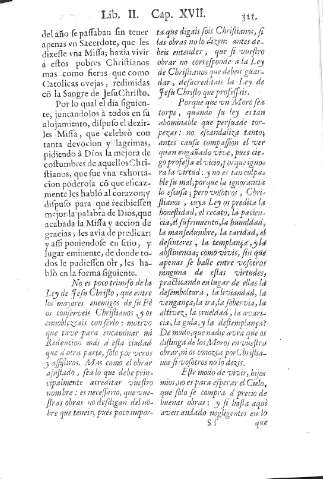 Lib. II. Cap. XVII. 321.
del año se passaban sin tener
apenas vn Sacerdote, que les
dixesse vna Missa; hazia vivir
á estos pobres Christianos
mas como fieras que como
Catolicas ovejas, redimidas
cõ la Sangre de Jesu Christo.
Por lo qual el dia siguien-
te, juncandolos á todos en su
alojamiento, dispuso el dezir-
les Missa, que celebrò con
tanta devocion y lagrimas,
pidiendo á Dios la mejora de
costumbres de aquellos Chri-
stianos, que fue vna exhorta-
cion poderosa cõ que eficaz-
mente les habló al coraçon, y
dispuso para que recibiessen
mejor la palabra de Dios, que
acabada la Missa y accion de
gracias, les avia de predicar;
y assi poniendose en sitio, y
lugar eminente, de donde to-
dos le pudiessen oir, les ha-
blò en la forma siguiente.
No es poco triunfo de la
Ley de Jesu Christo, que entre
los mayores enemigos de su Fè
os conserveis Christianos, y os
ennoblezcais con serlo: motivo
que tuve para encaminar mi
Redencion más á esta ciudad
que á otra parte, solo por veros
y assistiros. Mas como el obrar
es
lo que debe prin-
cipalmente acreditar vuestro
nombre: es necessario, que vue-
stras obras no desdigan del nõ-
bre que teneis, pues poco impor-
ta que digais sois Christianos, si
las obras no lo dizen antes de-
beis entender, que si vuestro
obrar no corresponde a la Ley
de Christianos que debeis guar-
dar, desacreditais la Ley de
Jesu Christo que professais.
Porque que un Moro sea
torpe, quando su ley es tan
abominable que persuade tor-
pezas: no escandaliza tanto,
antes causa compassion el ver
quan engañado vive, pues cie-
go professa el vicio, porque igno-
ra la virtud: y no es tan culpa-
ble su mal, porque la ignorancia
lo escusa; pero vosotros, Chri-
stianos, cuya Ley os predica la
honestidad, el recato, la pacien-
cia, el sufrimiento, la humildad,
la mansedumbre, la caridad, el
desinteres, la templança, y la
abstinencia; como vivis, sin que
apenas se halle entre vosotros
ninguna de estas virtudes,
practicando en lugar de ellas la
desemboltura, la liviandad, la
vengança, la ira, la sobervia, la
altivez, la crueldad, la avari-
cia, la gula, y la destemplança?
De modo, que nadie avrà que os
distinga de los Moros en vuestro
obrar, ni os conozca por Christia-
nos si vosotros no lo dezis.
Este modo de vivir, hijos
mios, no es para esperar el Cielo,
que solo se compra á precio de
buenas obras: y si hasta aqui
aveis andado negligentes en lo
S s que